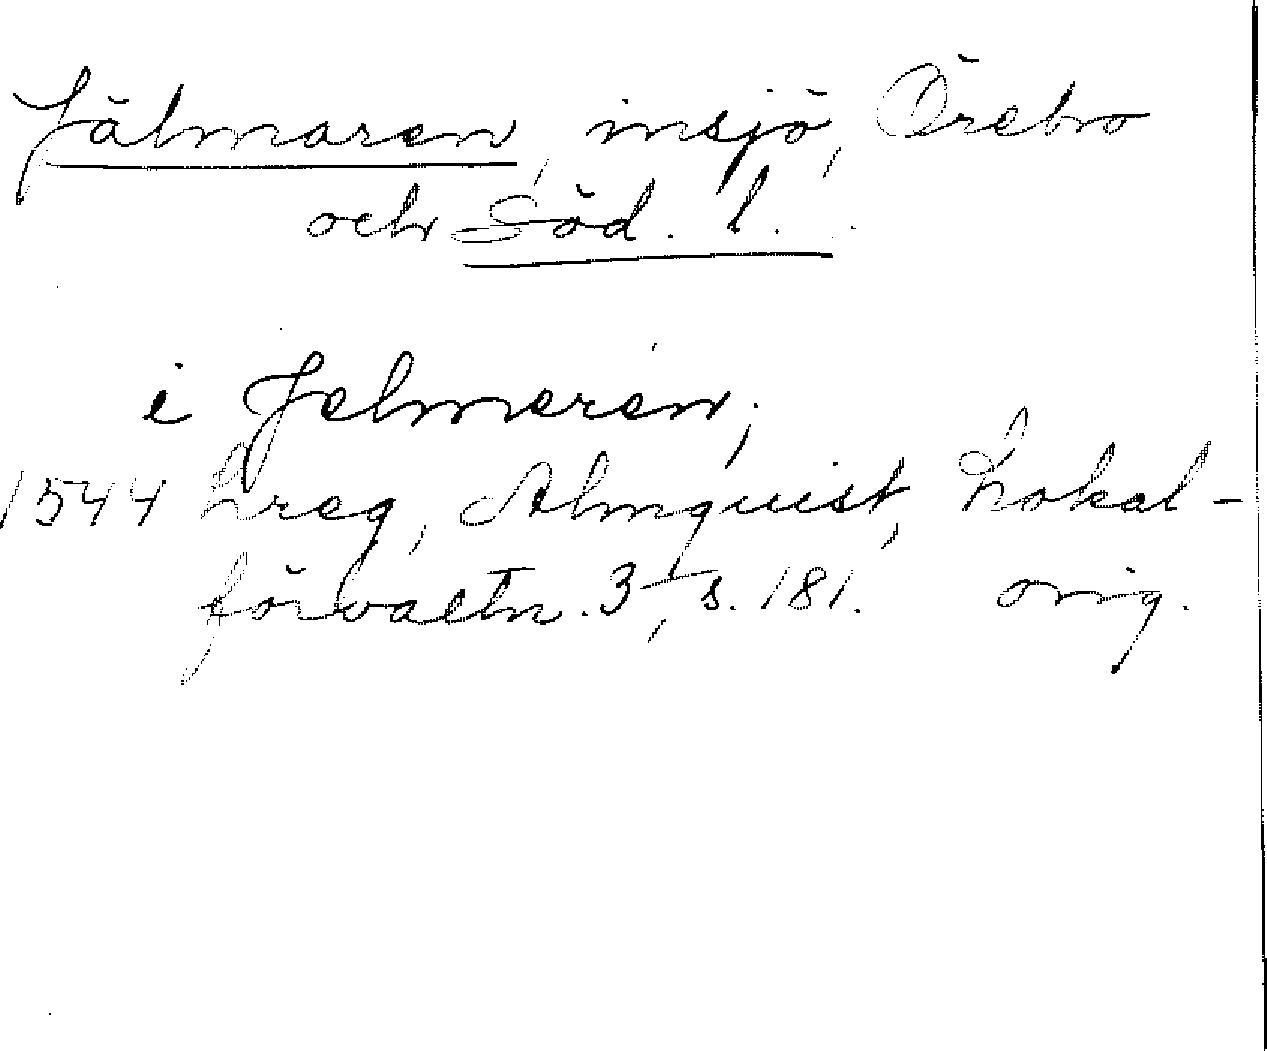 Jälmaren, insjö, Örebro
och Söd. l.
i Jelmeren,
1544 Lreg, Almquist, Lokal-
förvaltn. 3, s. 181. orig.